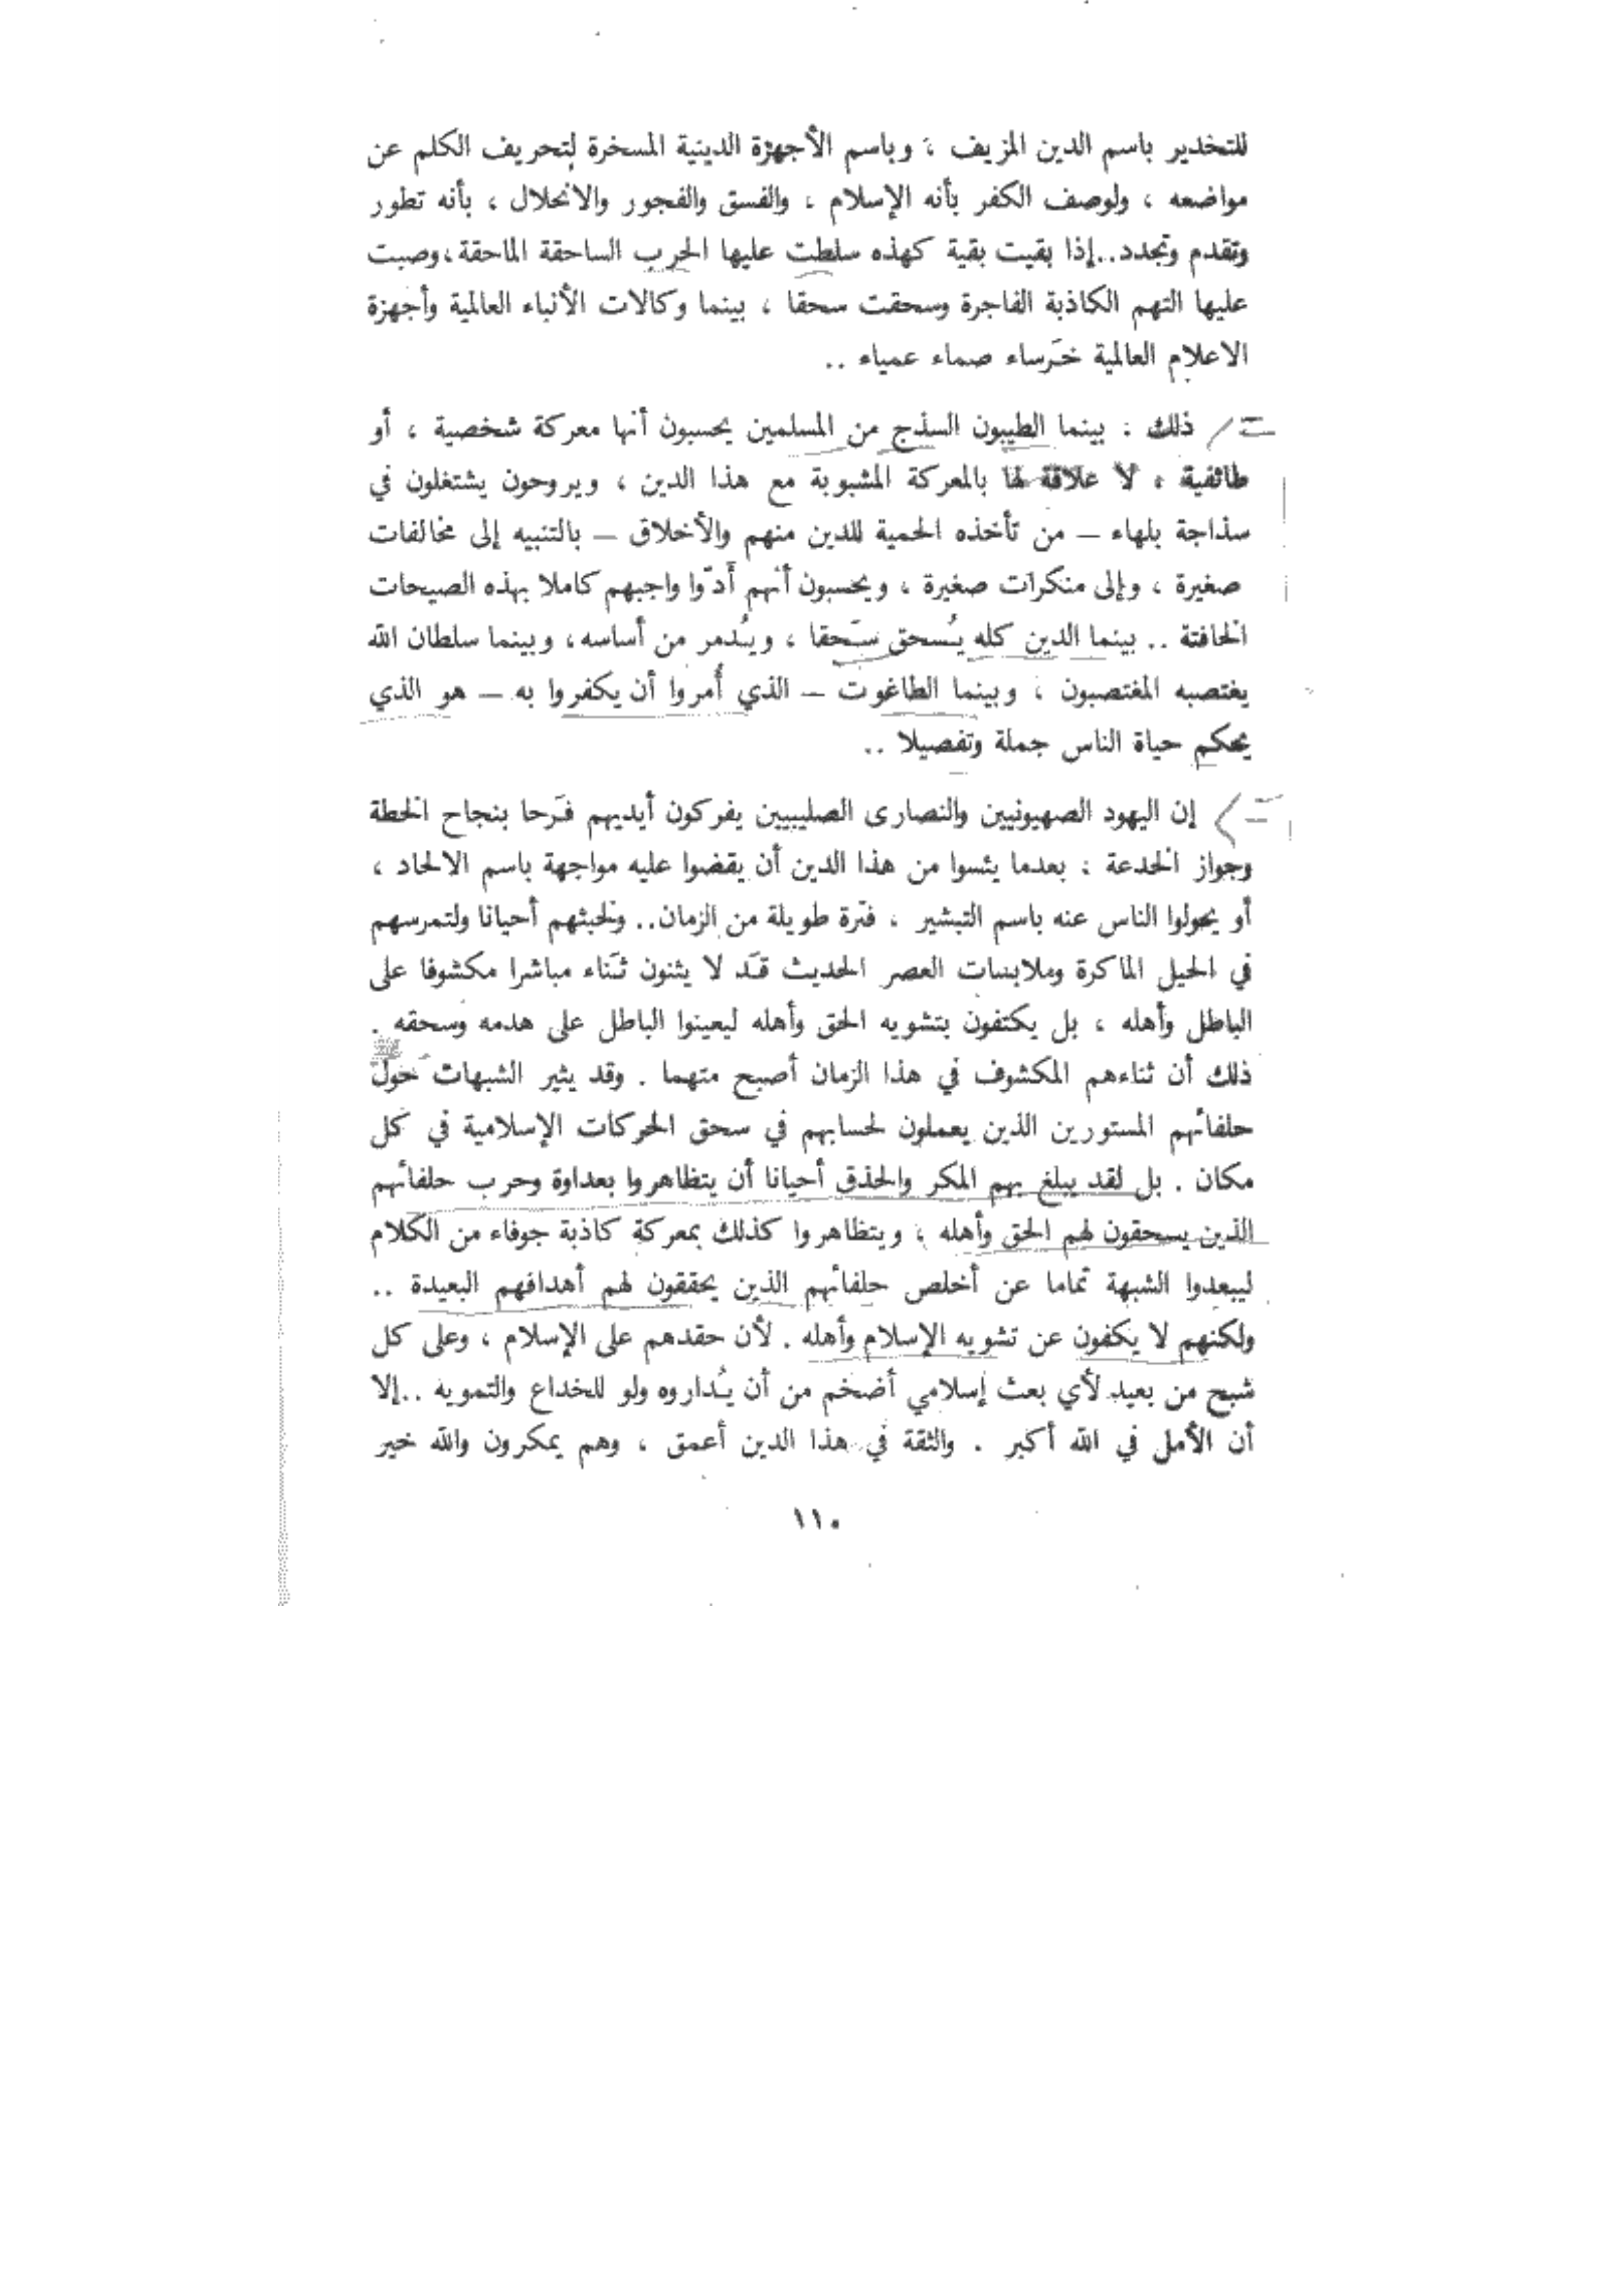 للتخدير باسم الدين المزيف ، وباسم الأجهزة الدينية المسخرة لتحريف الكلم عن
مواضعه ، ولوصف الكفر بأنه الإسلام ، والفسق والفجور والانحلال ، بأنه تطور
وتقدم وتجدد..إذا بقيت بقية كهذه سلطت عليها الحرب الساحقة الماحقة،وصبت
عليها التهم الكاذبة الفاجرة وسحقت سحقا ، بينما وكالات الأنباء العالمية وأجهزة
الاعلام العالمية خَرساء صماء عمياء ..
ذلك : بينما الطيبون السذج من المسلمين يحسبون أنها معركة شخصية ، أو
طائفية ، لا علاقة لها بالمعركة المشبوبة مع هذا الدين ، ويروحون يشتغلون في
سذاجة بلهاء – من تأخذه الحمية للدين منهم والأخلاق – بالتنبيه إلى مخالفات
صغيرة ، وإلى منكرات صغيرة ، ويحسبون أنهم أدّوا واجبهم كاملا بهذه الصيحات
الخافتة .. بينما الدين كله يُسحق سَحقا ، ويُدمر من أساسه، وبينما سلطان الله
يغتصبه المغتصبون ، وبينما الطاغوت – الذي أُمروا أن يكفروا به – هو الذي
يحكم حياة الناس جملة وتفصيلا ..
إن اليهود الصهيونيين والنصارى الصليبيين يفركون أيديهم فَرحا بنجاح الخطة
وجواز الخدعة : بعدما يئسوا من هذا الدين أن يقضوا عليه مواجهة باسم الالحاد ،
أو يحولوا الناس عنه باسم التبشير ، فترة طويلة من الزمان.. ولخبثهم أحيانا ولتمرسهم
في الحيل الماكرة وملابسات العصر الحديث قَد لا يثنون ثَناء مباشرا مكشوفا على
الباطل وأهله ، بل يكتفون بتشويه الحق وأهله ليعينوا الباطل على هدمه وسحقه .
ذلك أن ثناءهم المكشوف في هذا الزمان أصبح متهما . وقد يثير الشبهات حول
حلفائهم المستورين الذين يعملون لحسابهم في سحق الحركات الإسلامية في كل
مكان . بل لقد يبلغ بهم المكر والحذق أحيانا أن يتظاهروا بعداوة وحرب حلفائهم
الذين يسحقون لهم الحق وأهله ، ويتظاهروا كذلك بمعركة كاذبة جوفاء من الكلام
ليبعدوا الشبهة تماما عن أخلص حلفائهم الذين يحققون لهم أهدافهم البعيدة ..
ولكنهم لا يكفون عن تشويه الإسلام وأهله . لأن حقدهم على الإسلام ، وعلى كل
شبح من بعيد لأي بعث إسلامي أضخم من أن يُداروه ولو للخداع والتمويه ..إلا
أن الأمل في الله أكبر . والثقة في هذا الدين أعمق ، وهم يمكرون والله خير
١١٠